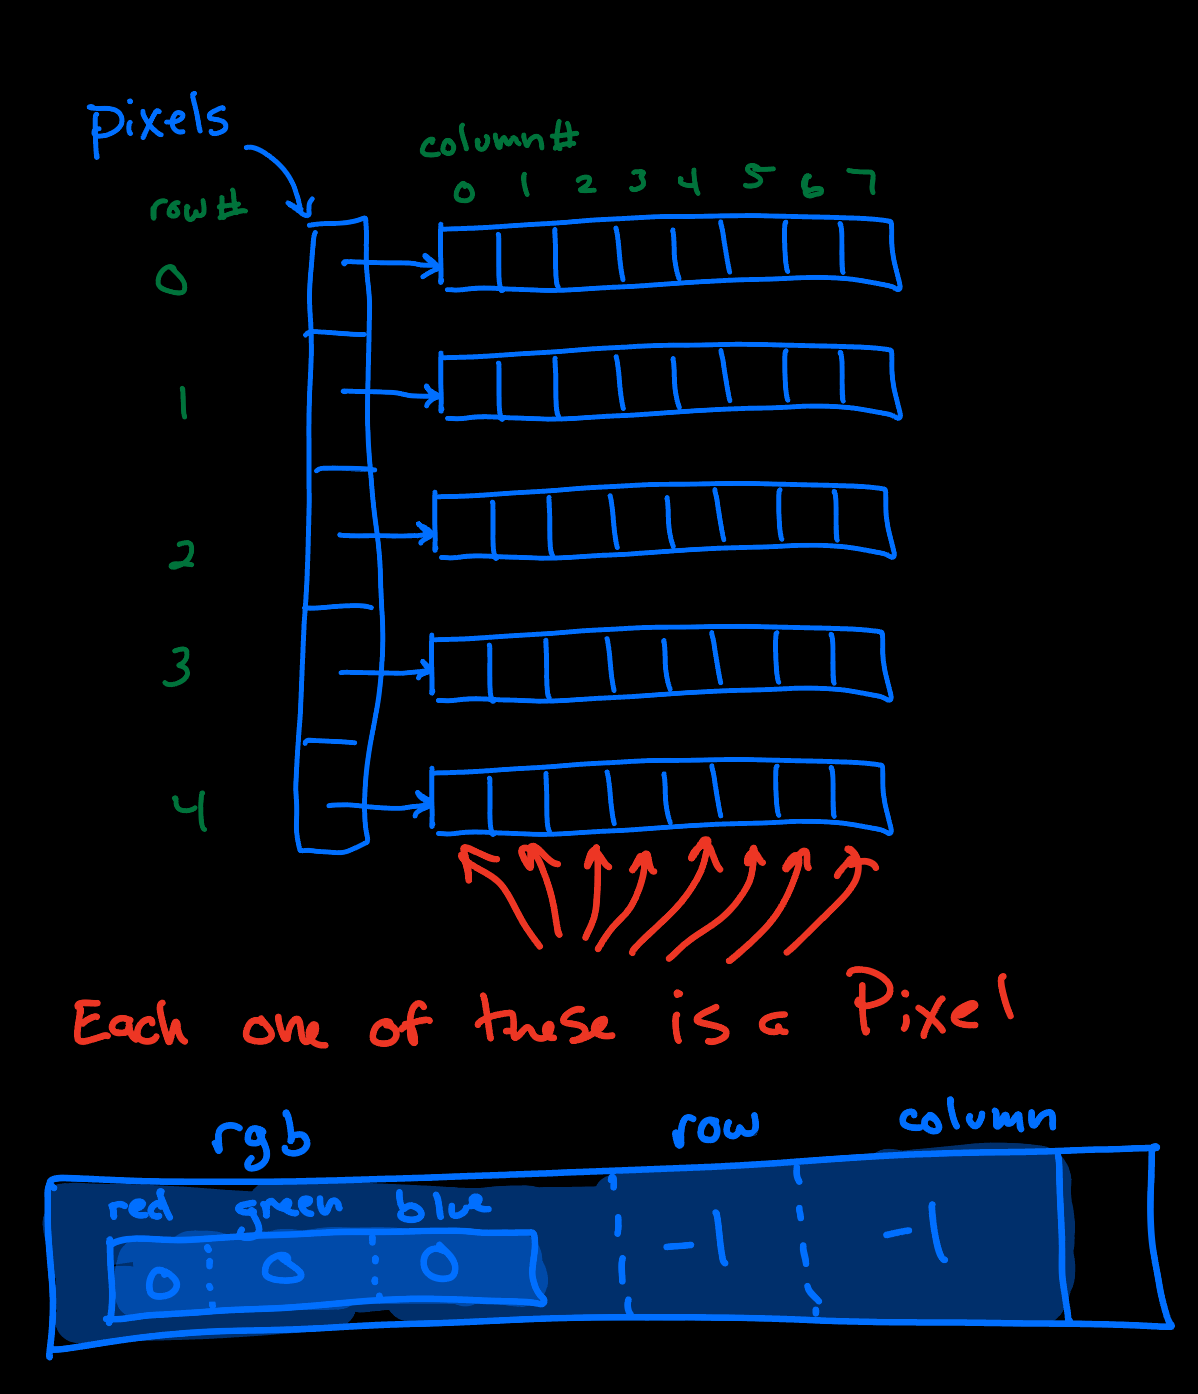 pixels
column#
0 1 2 3 4 5 6 7
row#
0
1
2
3
4
Each one of these is a Pixel
rgb row column
red green blue
0 0 0 -1 -1